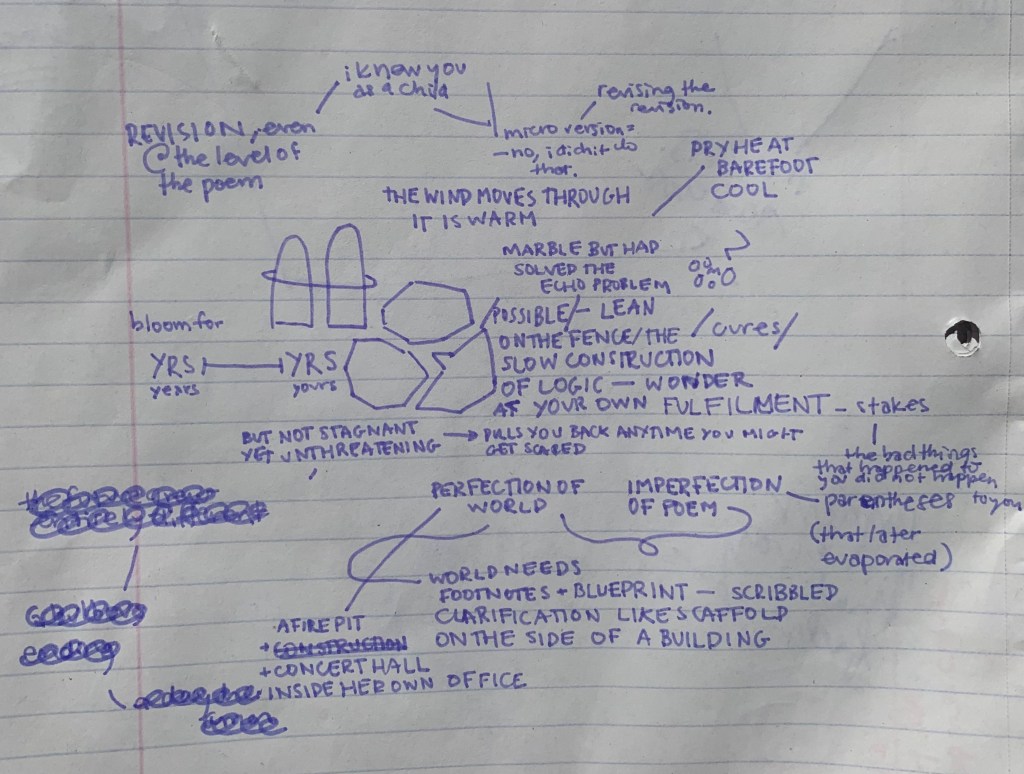 i knew you
as a child
revising the
revision.
REVISION, even
@ the level of
the poem
micro version =
— no, i didn't do
that.
DRY HEAT
BAREFOOT
COOL
THE WIND MOVES THROUGH
IT IS WARM
MARBLE BUT HAD
SOLVED THE
ECHO PROBLEM
bloom for
YRS YRS
years yours
POSSIBLE/— LEAN
ON THE FENCE/THE /cures/
SLOW CONSTRUCTION
OF LOGIC — WONDER
AT YOUR OWN FULFILMENT — stakes
BUT NOT STAGNANT
YET UNTHREATENING
PULLS YOU BACK ANYTIME YOU MIGHT
GET SCARED
the bad things
that happened to
you did not happen
to you
PERFECTION OF
WORLD
IMPERFECTION
OF POEM
parentheses
(that later
evaporated)
WORLD NEEDS
FOOTNOTES + BLUEPRINT — SCRIBBLED
CLARIFICATION LIKE SCAFFOLD
ON THE SIDE OF A BUILDING
A FIRE PIT
+ CONSTRUCTION
+ CONCERT HALL
INSIDE HER OWN OFFICE